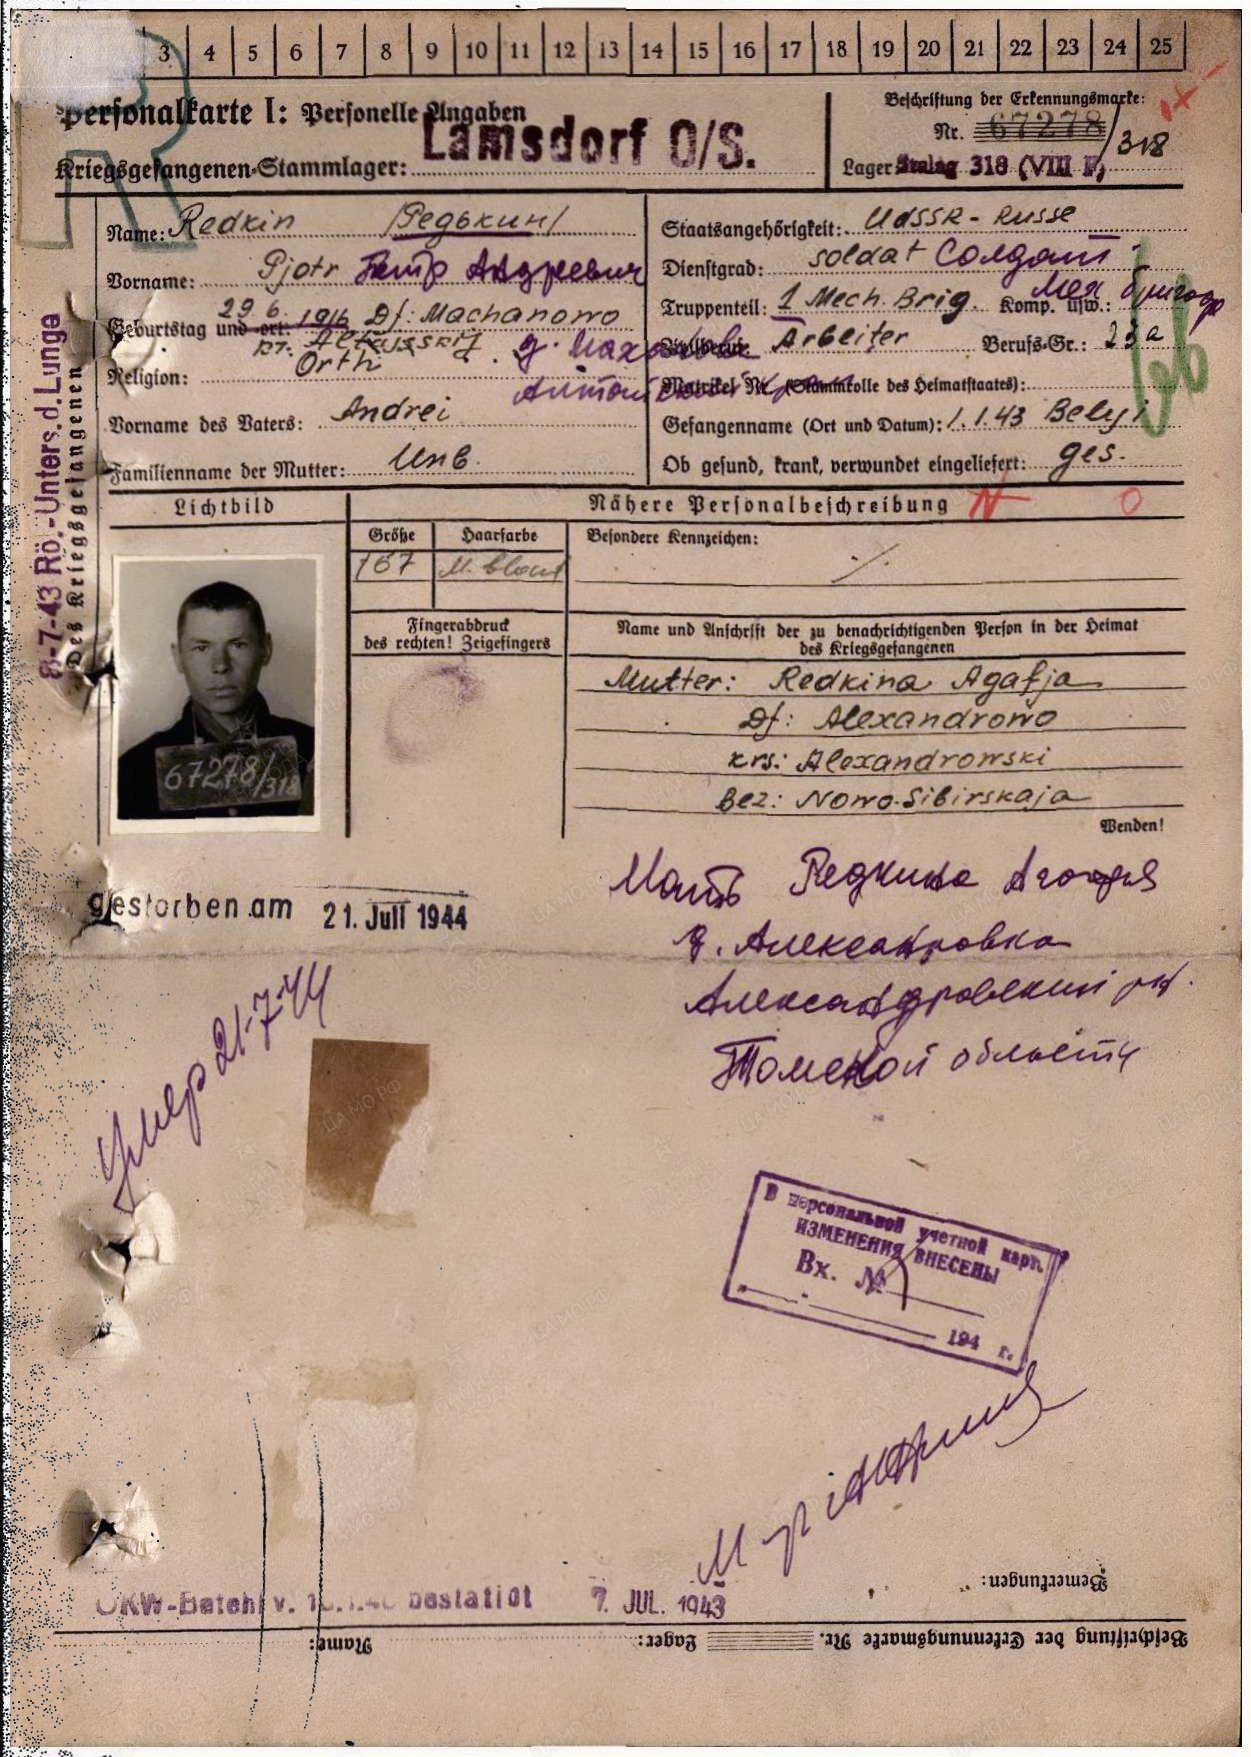 3 4 5 6 7 8 9 10 11 12 13 14 15 16 17 18 19 20 21 22 23 24 25
Personalkarte I: Personelle Angaben
Beschriftung der Erkennungsmarke:
Nr. 67278/318
Kriegsgefangenen-Stammlager: Lamsdorf O/S.
Lager Stalag 318 (VIII F)
Name: Redkin /Редькин/
Staatsangehörigkeit: UdSSR - Russe
Vorname: Pjotr Петр Андреевич
Dienstgrad: soldat Солдат
Truppenteil: 1 Mech. Brig. Komp. usw.: Мех бригада
Geburtstag und -ort: 29.6.1916 Df: Machanowo
Arbeiter Berufs-Gr.: 23a
Religion: Orth
Matrikel Nr. (Stammrolle des Heimatstaates):
Vorname des Vaters: Andrei
Gefangenname (Ort und Datum): 1.1.43 Belyi
Familienname der Mutter: Unb.
Ob gesund, krank, verwundet eingeliefert: ges.
8-7-43 Rö.-Unters.d.Lunge
Des Kriegsgefangenen
Lichtbild
Nähere Personalbeschreibung N O
Größe Haarfarbe Besondere Kennzeichen:
167 M. blond ./.
Fingerabdruck
des rechten! Zeigefingers
Name und Anschrift der zu benachrichtigenden Person in der Heimat
des Kriegsgefangenen
Mutter: Redkina Agafja
Df: Alexandrowo
krs: Alexandrowski
Bez: Nowo-Sibirskaja
67278/318
Wenden!
Мать Редкина Агафья
д. Александровка
Александровский рн.
Томской области
gestorben am 21. Juli 1944
Умер 21-7-44
В персональной учетной карт.
ИЗМЕНЕНИЯ ВНЕСЕНЫ
Вх. №
194 г.
Bemerkungen:
OKW-Befehl v. bestätigt 7. JUL. 1943
Beschriftung der Erkennungsmarke Nr. Lager: Name: